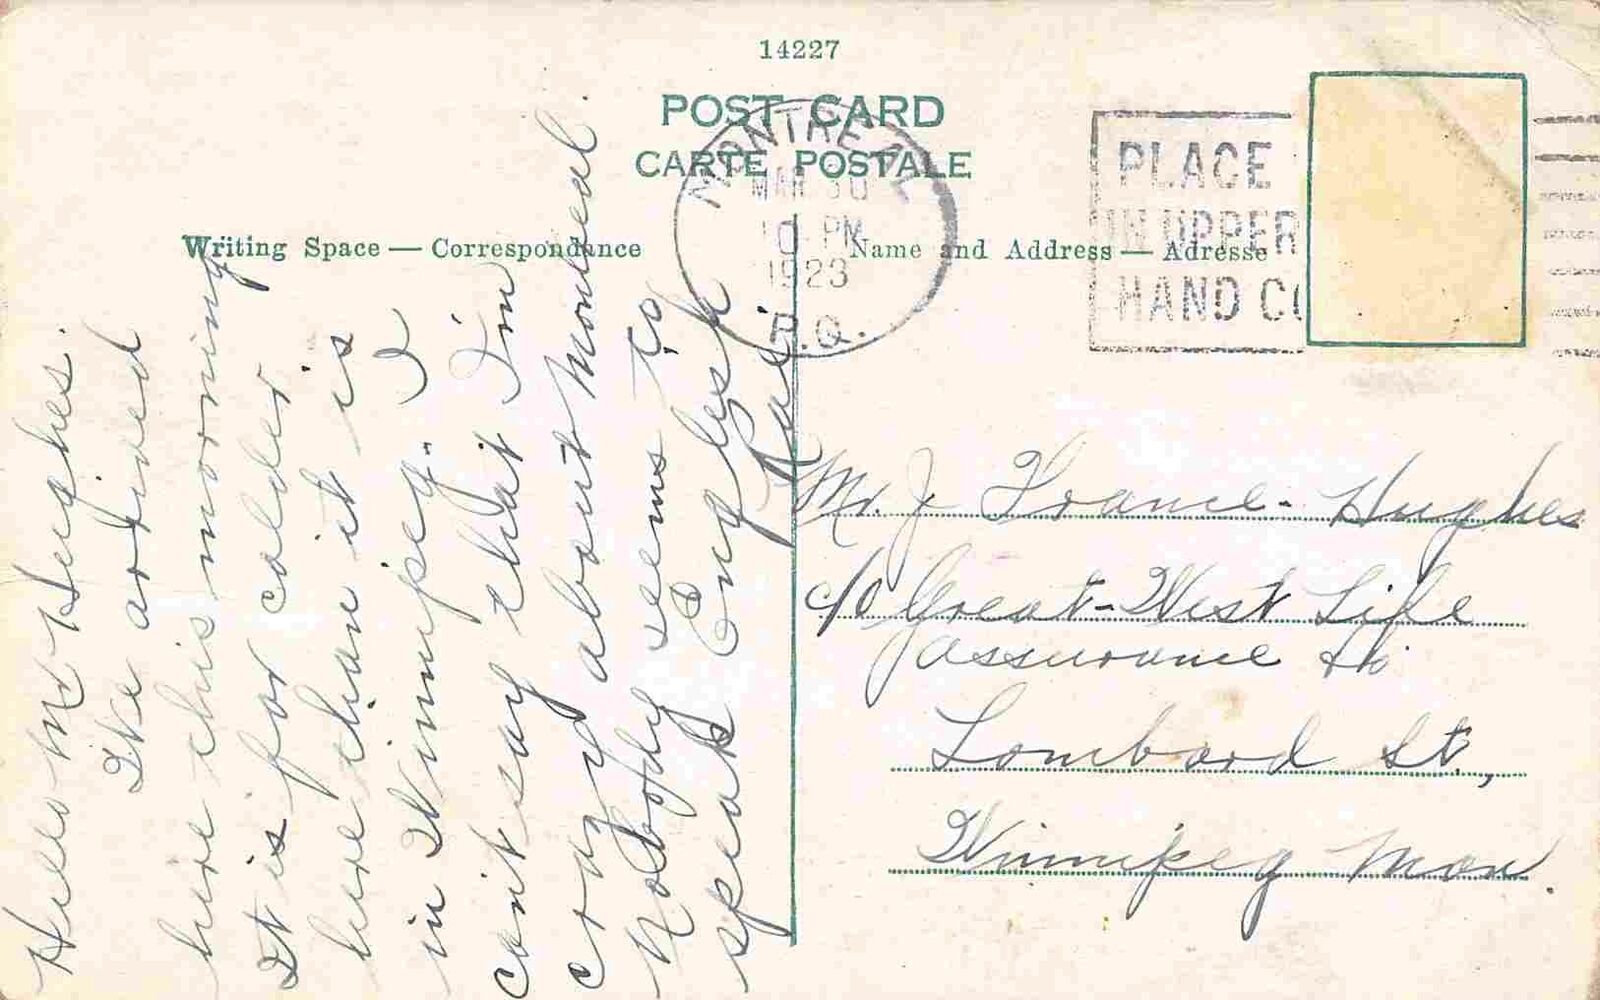 14227
POST CARD
CARTE POSTALE
Writing Space — Correspondance
Name and Address — Adresse
MONTREAL
MAR 30
10 PM
1923
P.Q.
PLACE
IN UPPER
HAND CO
Hello Mr Hughes.
We arrived
here this morning
It is far colder
here than it is
in Winnipeg. I
cant say that I'm
crazy about Montreal.
Nobody seems to
speak English
Mr. J France-Hughes
c/o Great-West Life
Assurance Co
Lombard St,
Winnipeg Man.